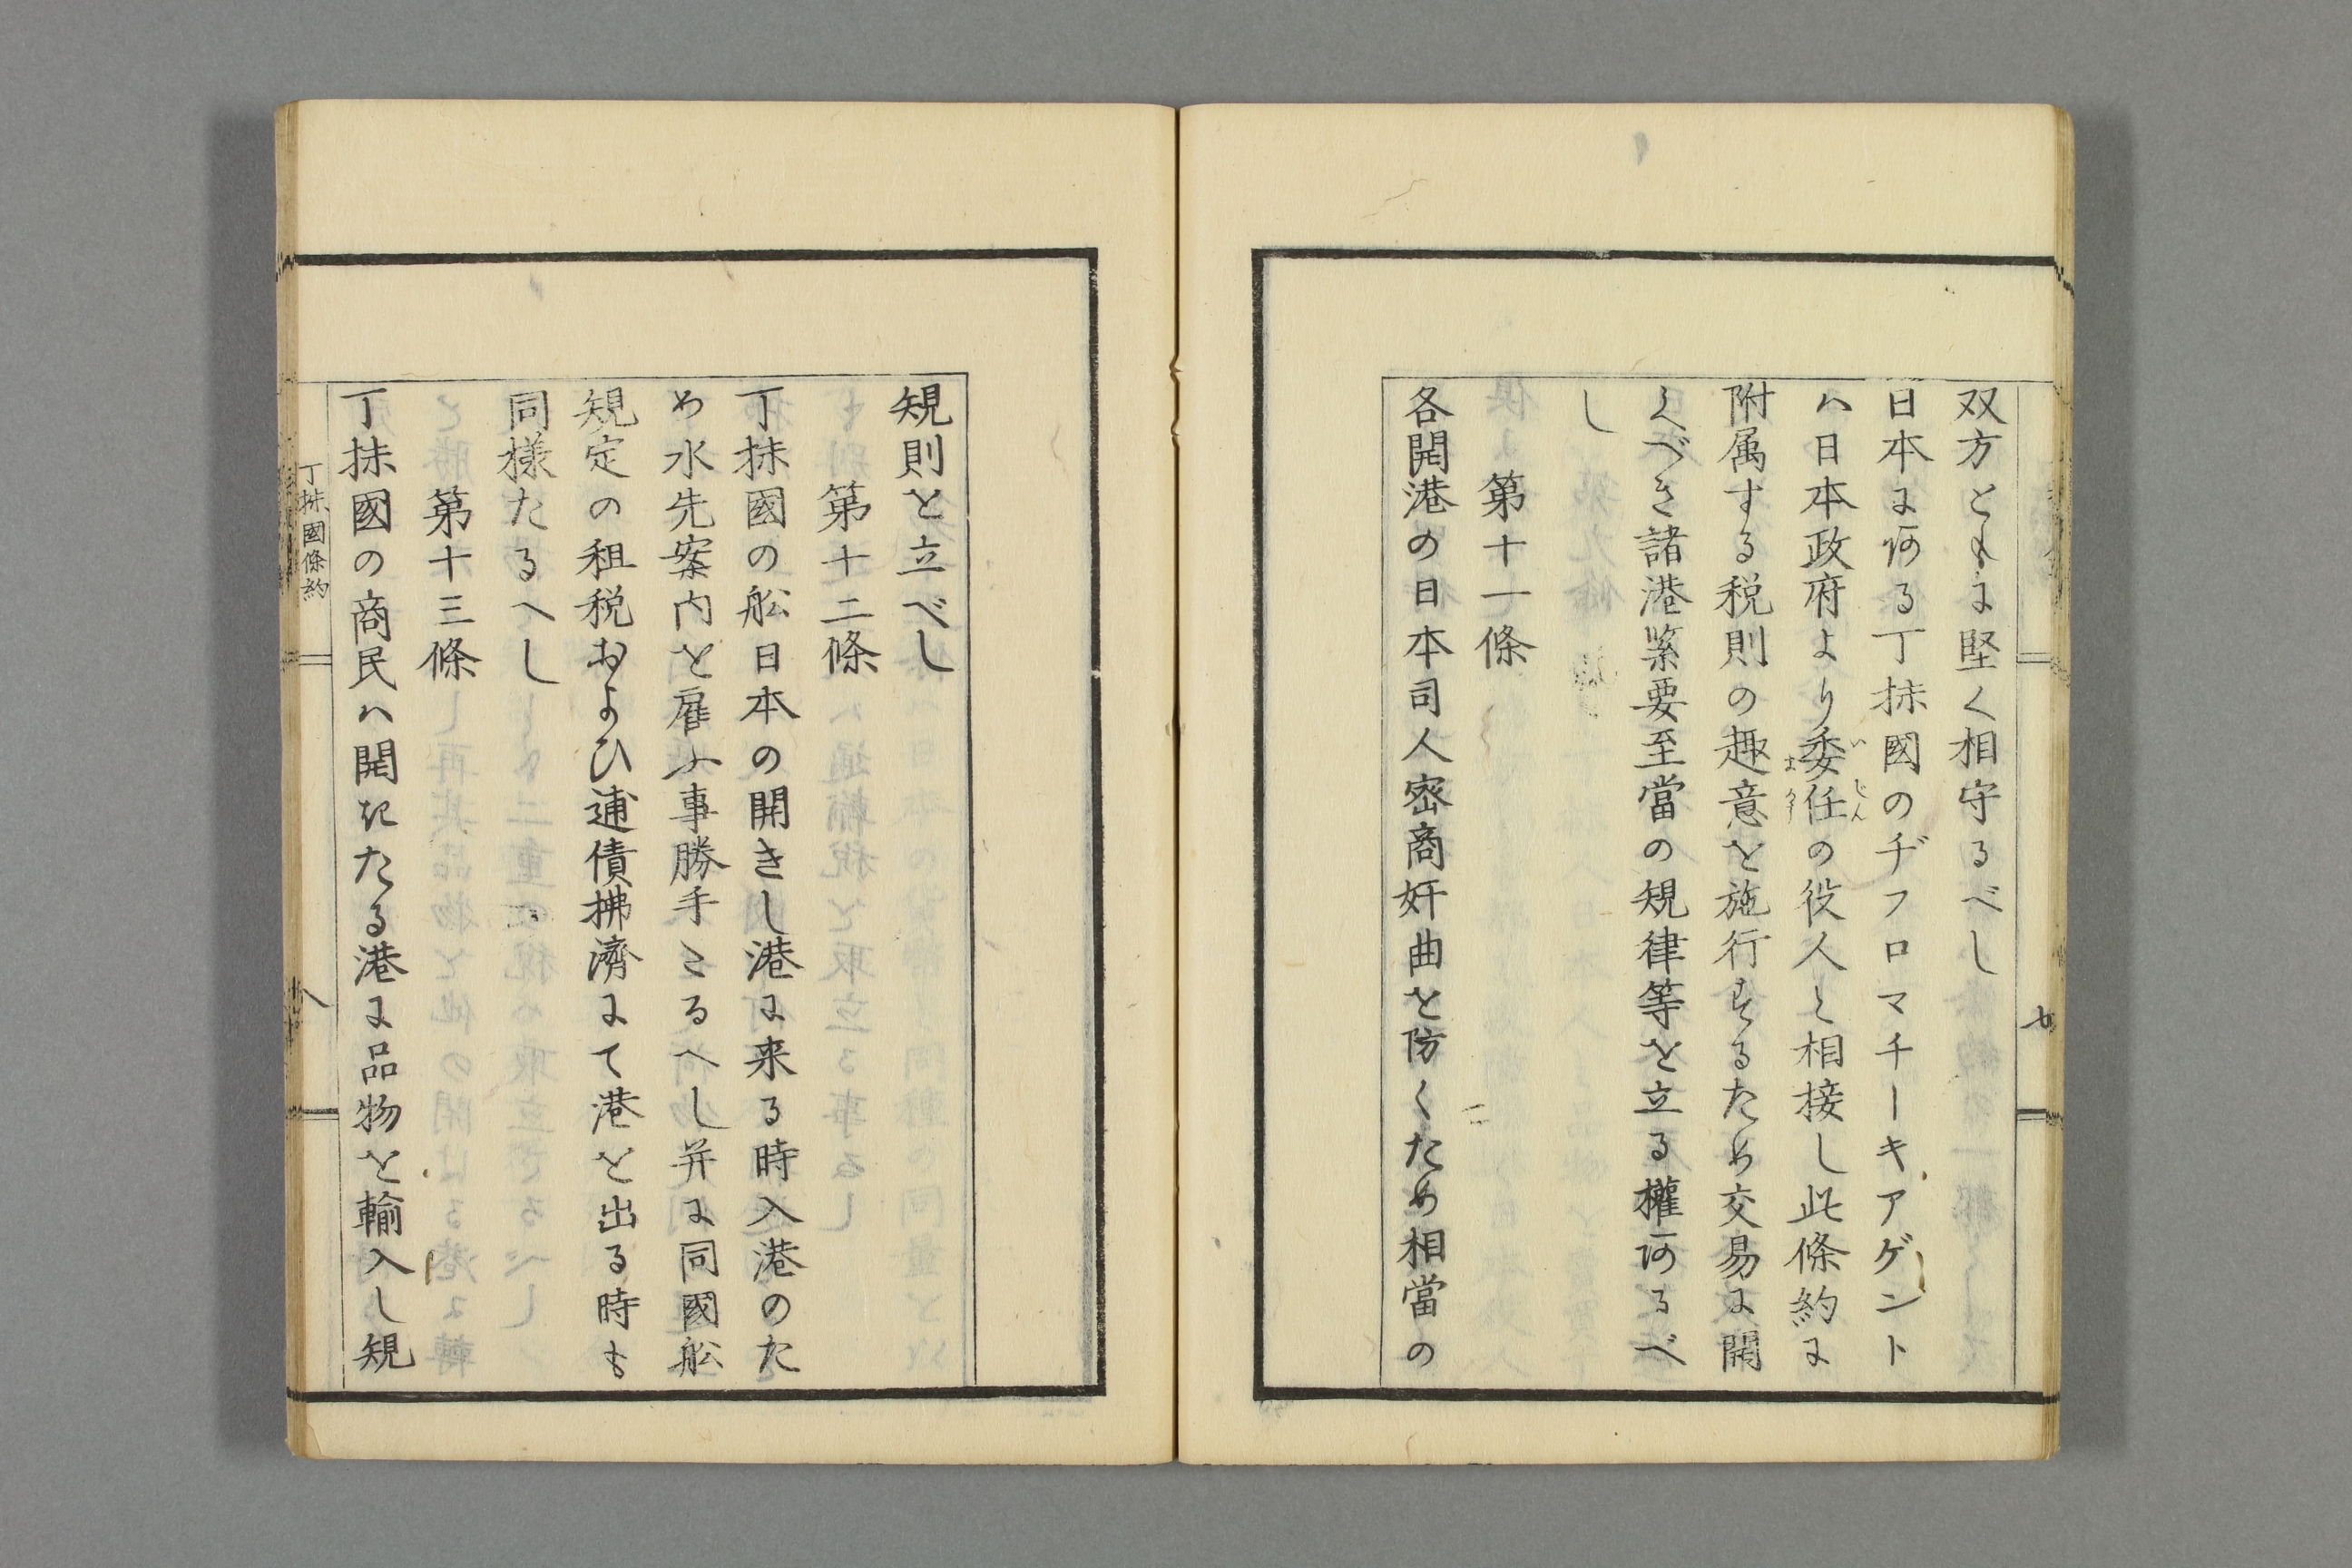 双方ともに堅く相守るべし
日本に阿る丁抹國のヂフロマチーキアゲント
ハ日本政府より委任の役人と相接し此條約に
いじん
まかす
附属する税則の趣意を施行するため交易に開
くべき諸港緊要至當の規律等を立る權阿るべ
し
第十一條
各開港の日本司人密商奸曲を防くため相當の
七
規則を立べし
第十二條
丁抹國の舩日本の開きし港に来る時入港のた
め水先案内を雇ふ事勝手たるへし并に同國舩
規定の租税およひ逋債拂濟にて港を出る時も
同様たるへし
第十三條
丁抹國の商民ハ開きたる港に品物を輸入し規
丁抹國條約
八